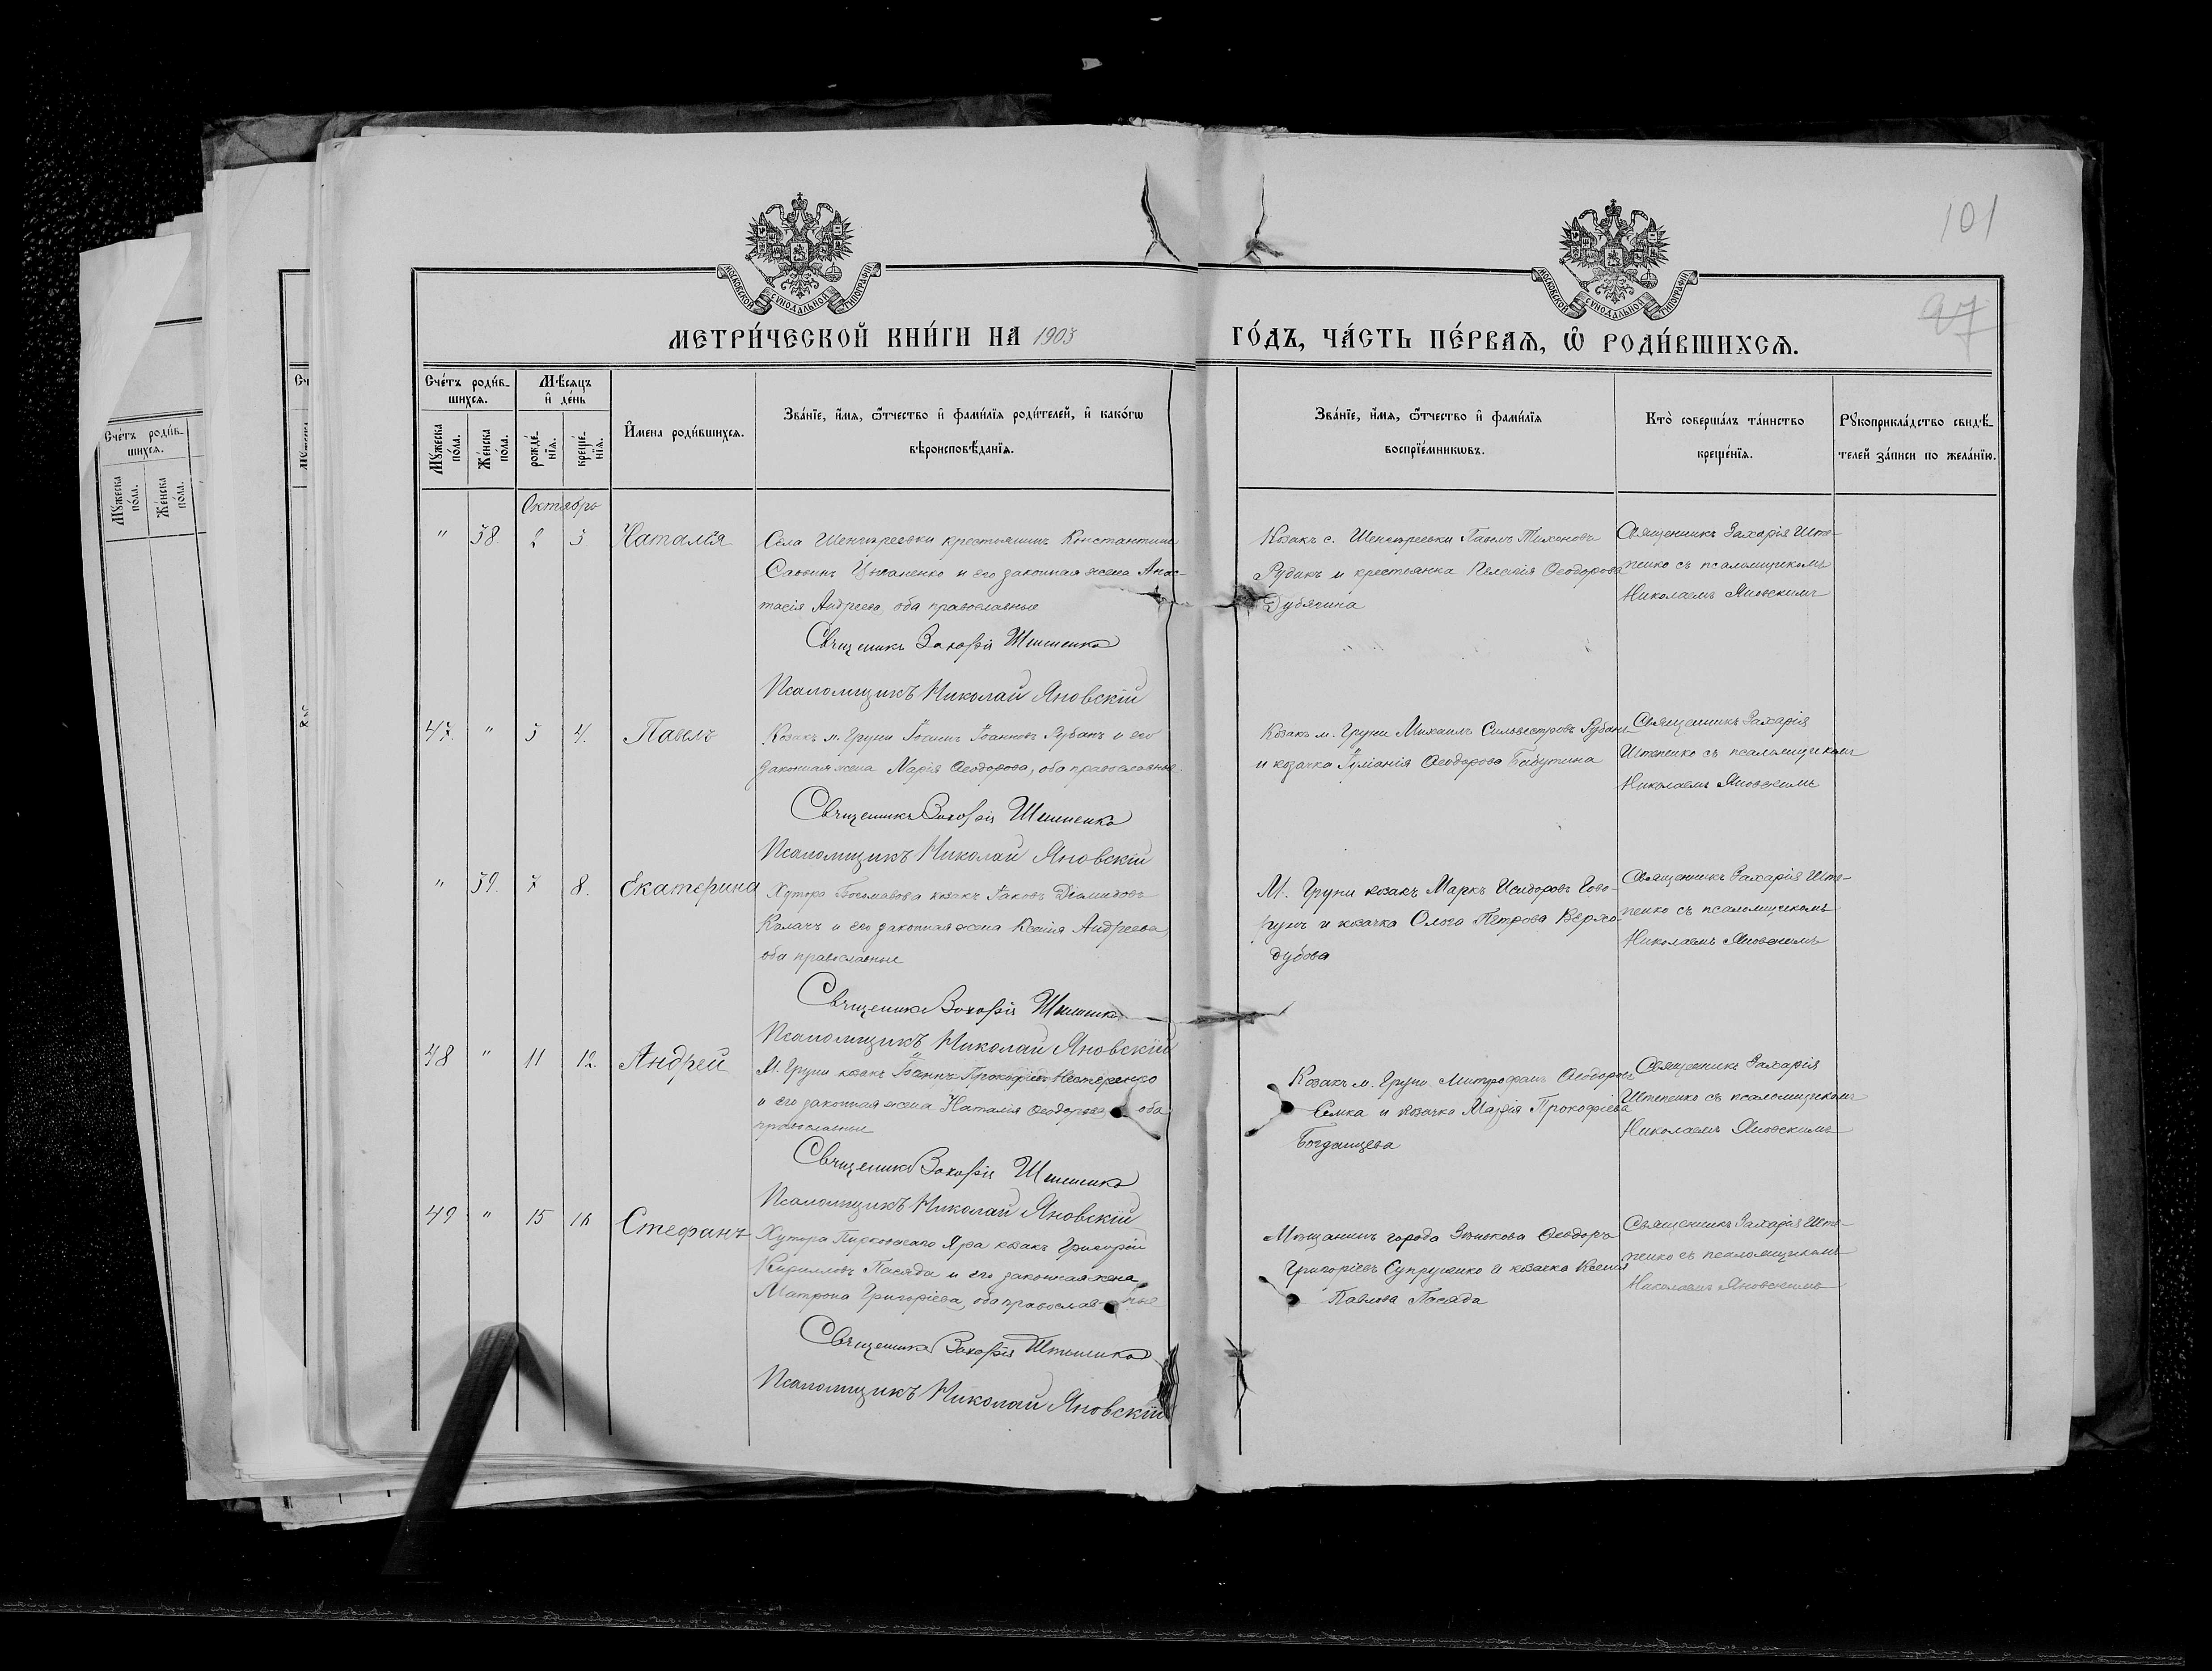 101
97
МОСКОВСКОЙ СѴНОДАЛЬНОЙ ТИПОГРАФІИ
МОСКОВСКОЙ СѴНОДАЛЬНОЙ ТИПОГРАФІИ
МЕТРИ́ЧЕСКОЙ КНИ́ГИ НА 1903 ГО́ДЪ, ЧА́СТЬ ПЕ́РВАѦ, Ѡ҆ РОДИ́ВШИХСѦ.
Сче́тъ роди́в-
шихсѧ.
Мꙋ́жеска по́ла.
Же́нска по́ла.
Мѣ́сѧцъ
и҆ де́нь
рожде́-
нїѧ.
креще́-
нїѧ.
И҆мена роди́вшихсѧ.
Зва́нїе, и҆́мѧ, ѻ҆́тчество и҆ фами́лїѧ роди́телей, и҆ како́гѡ
вѣроисповѣ́данїѧ.
Зва́нїе, и҆́мѧ, ѻ҆́тчество и҆ фами́лїѧ
воспрїе́мникѡвъ.
Кто̀ соверша́лъ та́инство
креще́нїѧ.
Рꙋкоприкла́дство свидѣ́-
телей за́писи по жела́нїю.
Октябрь
" 58 2 3 Наталія
Села крестьянинъ Константинъ
Саввинъ и его законная жена Анас-
тасія Андреева, оба православные
Священникъ Захарій Штепенко
Псаломщикъ Николай Яновскій
Козакъ с. Павелъ Тихоновъ
Рудикъ и крестьянка Пелагія Ѳеодорова
Дубягина
Священникъ Захарія Ште-
пенко съ псаломщикомъ
Николаемъ Яновскимъ
47. " 3 4. Павелъ
Козакъ м. Груни Іоаннъ Іоанновъ Рубанъ и его
законная жена Марія Ѳеодорова, оба православные.
Священникъ Захарій Штепенко
Псаломщикъ Николай Яновскій
Козакъ м. Груни Михаилъ Сильвестровъ Рубанъ
и козачка Іуліанія Ѳеодорова Бабутина
Священникъ Захарія
Штепенко съ псаломщикомъ
Николаемъ Яновскимъ
" 59. 7 8. Екатерина
Хутора козакъ Іаковъ Діомидовъ
Калачъ и его законная жена Ксенія Андреева,
оба православные
Священникъ Захарій Штепенко
Псаломщикъ Николай Яновскій
М. Груни козакъ Маркъ Исидоровъ Гово-
рунъ и козачка Ольга Петрова Верхо-
дубова
Священникъ Захарія Ште-
пенко съ псаломщикомъ
Николаемъ Яновскимъ
48 " 11 12. Андрей
М. Груни козакъ Іоаннъ Прокофіевъ Нестеренко
и его законная жена Наталія Ѳеодорова, оба
православные
Священникъ Захарій Штепенко
Псаломщикъ Николай Яновскій
Козакъ м. Груни Митрофанъ Ѳеодоровъ
Семка и козачка Марія Прокофіева
Богданцева
Священникъ Захарія
Штепенко съ псаломщикомъ
Николаемъ Яновскимъ
49 " 15 16 Стефанъ
Хутора Пирковскаго Яра козакъ Григорій
Кирилловъ Пасяда и его законная жена
Матрона Григоріева, оба православные
Священникъ Захарій Штепенко
Псаломщикъ Николай Яновскій
Мѣщанинъ города Зѣнькова Ѳеодоръ
Григоріевъ Супруненко и козачка Ксенія
Павлова Пасяда
Священникъ Захарія Ште-
пенко съ псаломщикомъ
Николаемъ Яновскимъ
Сче́тъ роди́в-
шихсѧ.
Мꙋ́жеска по́ла.
Же́нска по́ла.